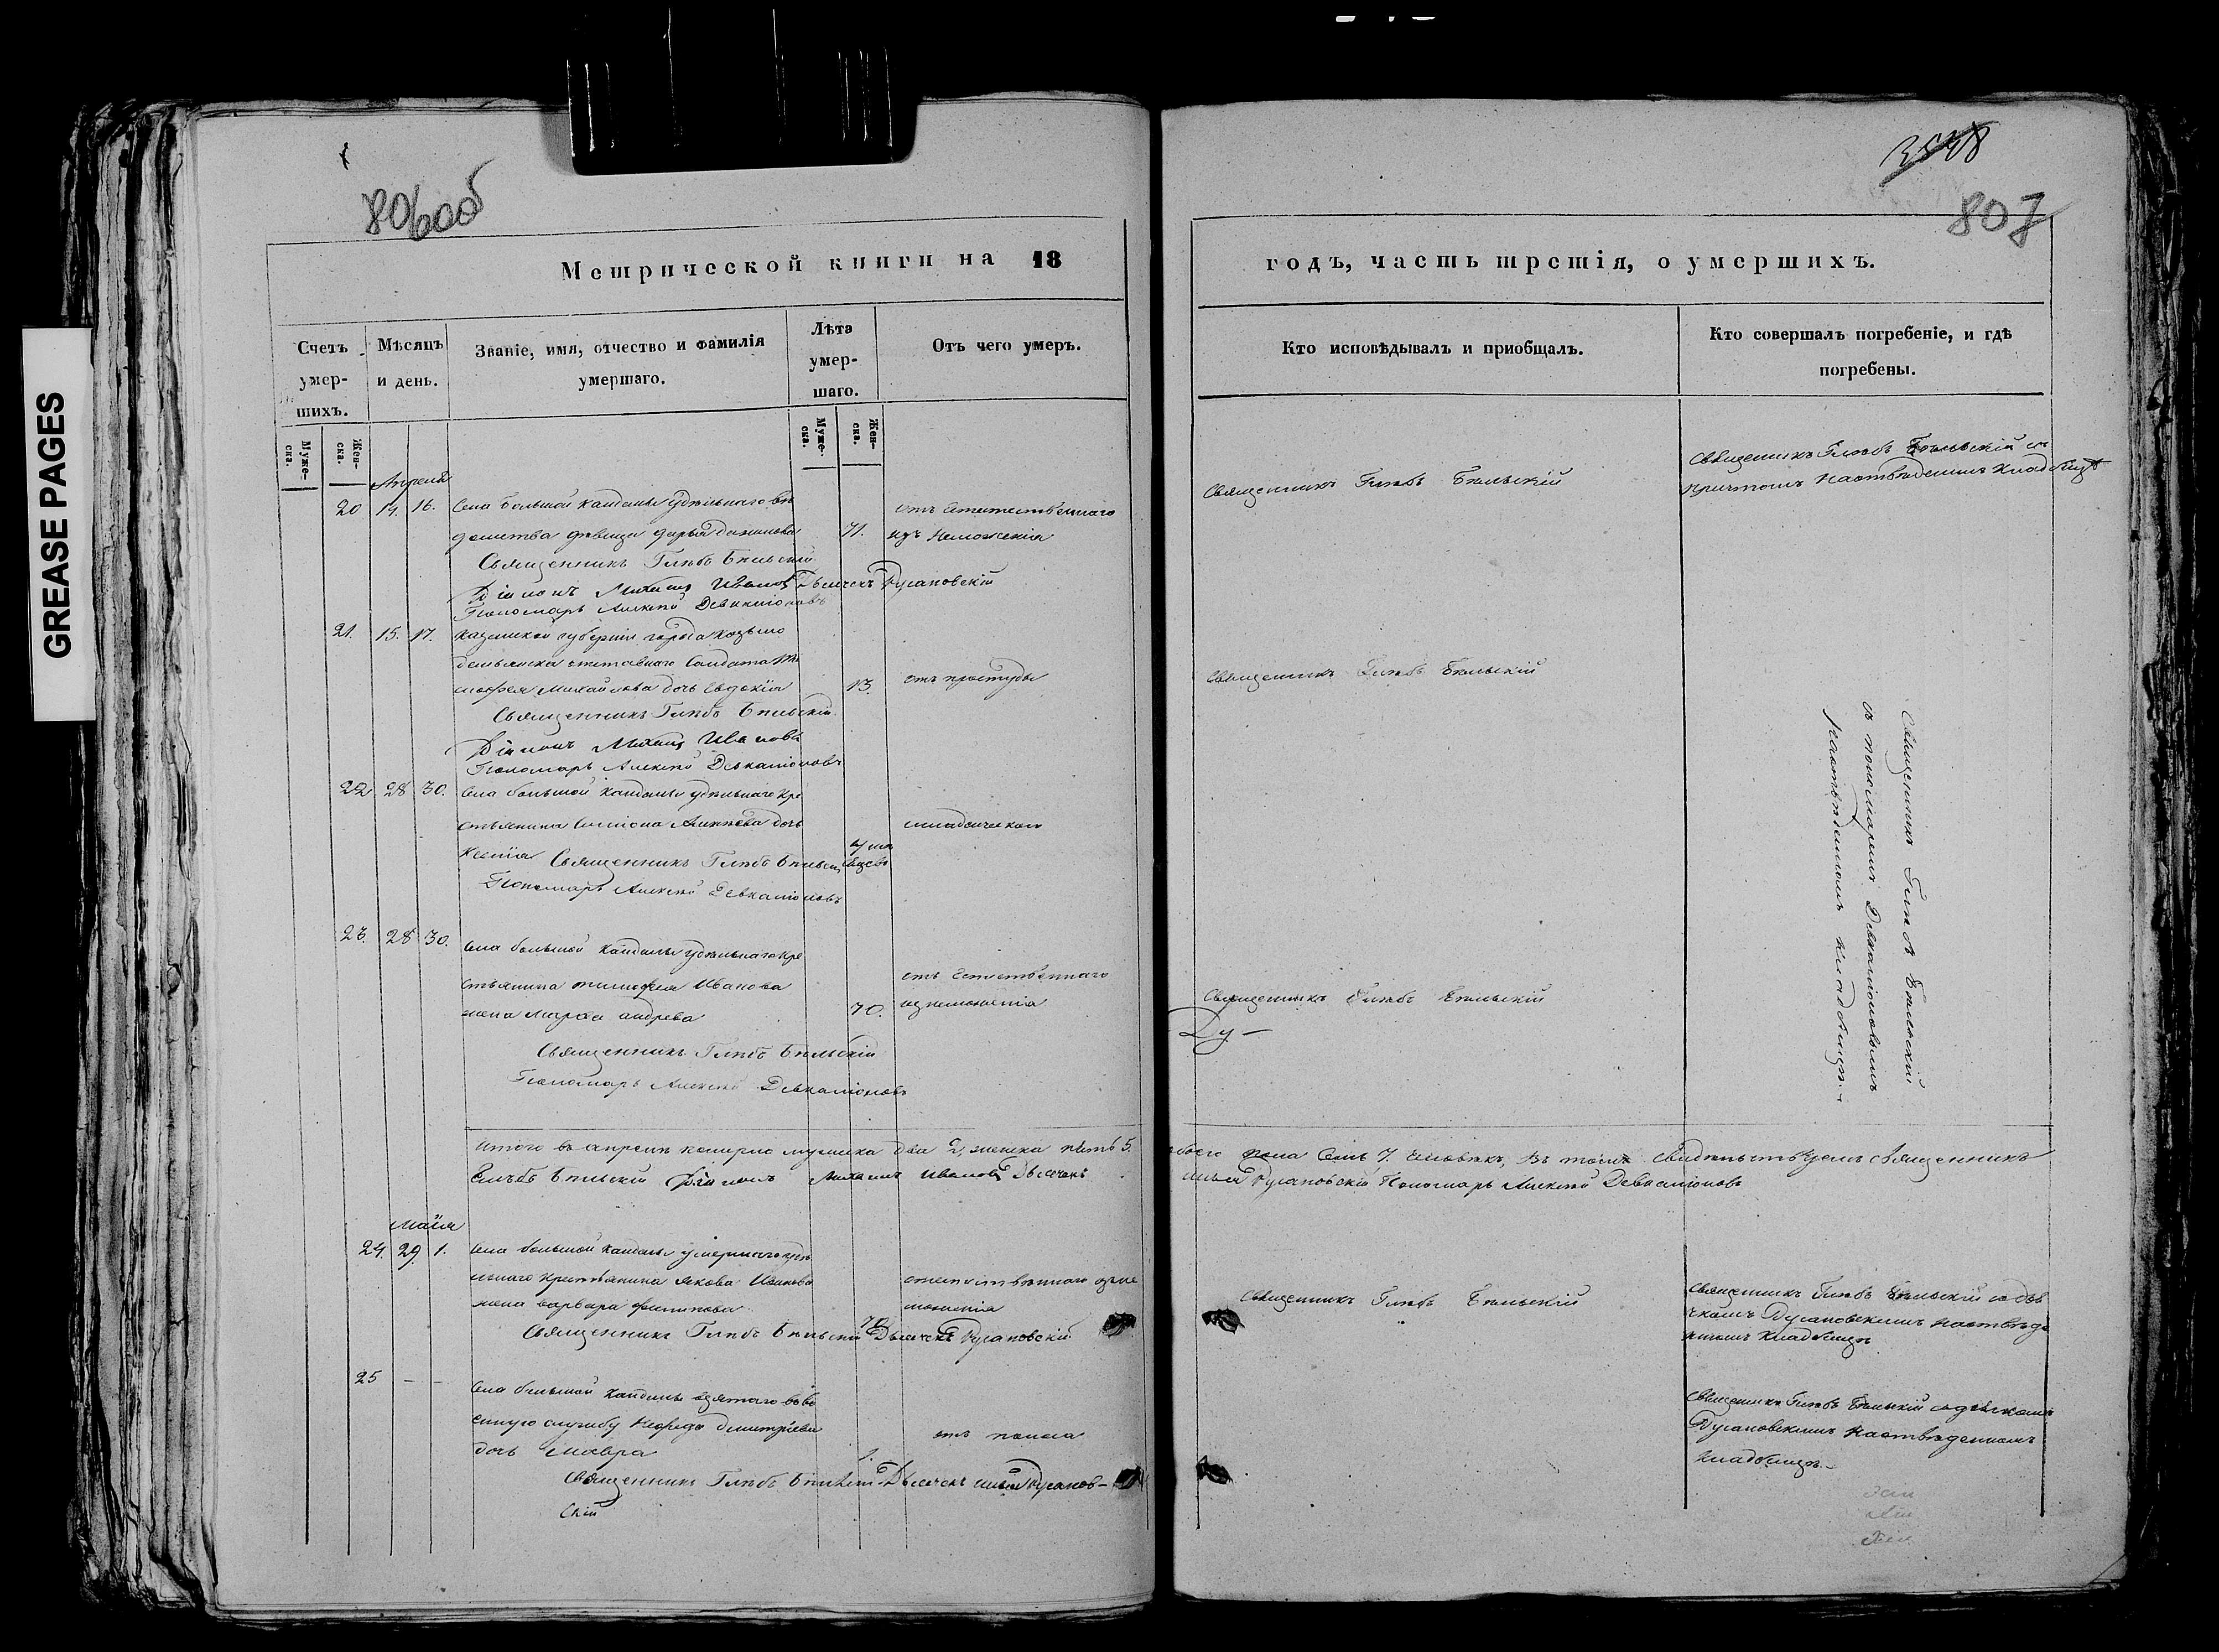 GREASE PAGES
806об
807
Метрической книги на 18
годъ, часть третія, о умершихъ.
Счетъ умер-
шихъ.
Мѣсяцъ
и день.
Званіе, имя, отчество и фамилія
умершаго.
Лѣта
умер-
шаго.
Отъ чего умеръ.
Кто исповѣдывалъ и приобщалъ.
Кто совершалъ погребеніе, и гдѣ
погребены.
Муже-
ска.
Жен-
ска.
Муже-
ска.
Жен-
ска.
Апреля
20 14. 16. Села большой Кандалы удѣльнаго вѣ
домства дѣвица дарья 71.
отъ Естественнаго
изъ неможенія
Священникъ Глѣбъ Бѣльскій
Священникъ Глѣбъ Бѣльскій съ
причтомъ На отведенномъ Кладбищѣ
Священникъ Глѣбъ Бѣльскій
Діаконъ Михаилъ Ивановъ Дьячекъ Русановскій
Пономарь Алексѣй Девкаліоновъ
21. 15. 17. Казанской губерніи города Козьмо
демьянска отставнаго Солдата Ти
мофея Михайлова дочь Евдокія 13.
отъ простуды
Священникъ Глѣбъ Бѣльскій
Священникъ Глѣбъ Бѣльскій
Діаконъ Михаилъ Ивановъ
Пономарь Алексѣй Девкаліоновъ
22 28 30. Села большой Кандалы удѣльнаго кре
стьянина Симіона Алексѣева дочь
младенческой
Ксенія Священникъ Глѣбъ Бѣльскій
Пономарь Алексѣй Девкаліоновъ
23. 28 30. Села большой Кандалы удѣльнаго кре
стьянина тимофея Иванова
жена Марфа андрева 70.
отъ Естественнаго
изнеможенія
Священникъ Глѣбъ Бѣльскій
Священникъ Глѣбъ Бѣльскій
Пономарь Алексѣй Девкаліоновъ
Священникъ Глѣбъ Бѣльскій
съ пономаремъ Девкаліоновымъ
На отведенномъ кладбищѣ.
Итого въ апрелѣ померло мужеска два 2, женска пять 5.
обоего пола Семь 7. человѣкъ, въ томъ свидѣтельствуемъ Священникъ
Глѣбъ Бѣльскій Діаконъ Михаилъ Ивановъ Дьячекъ
Илья Русановскій Пономарь Алексѣй Девкаліоновъ
Маія
24. 29. 1. Села большой Кандалы умершаго удѣ
льнаго крестьянина Якова Иванова
жена варвара филипова
естественнаго изне
можения
Священникъ Глѣбъ Бѣльскій
Священникъ Глѣбъ Бѣльскій съ дья
чкомъ Русановскимъ на отведе
нномъ Кладбищѣ
Священникъ Глѣбъ Бѣльскій Дьячекъ Русановскій
25 – – Села большой Кандалы взятаго въ во
енную службу Нефеда Дмитріева
дочь Мавра 1.
отъ поноса
Священникъ Глѣбъ Бѣльскій съ дьячкомъ
Русановскимъ На отведенномъ
Кладбищѣ.
Священникъ Глѣбъ Бѣльскій Дьячекъ Илья Русанов-
скій